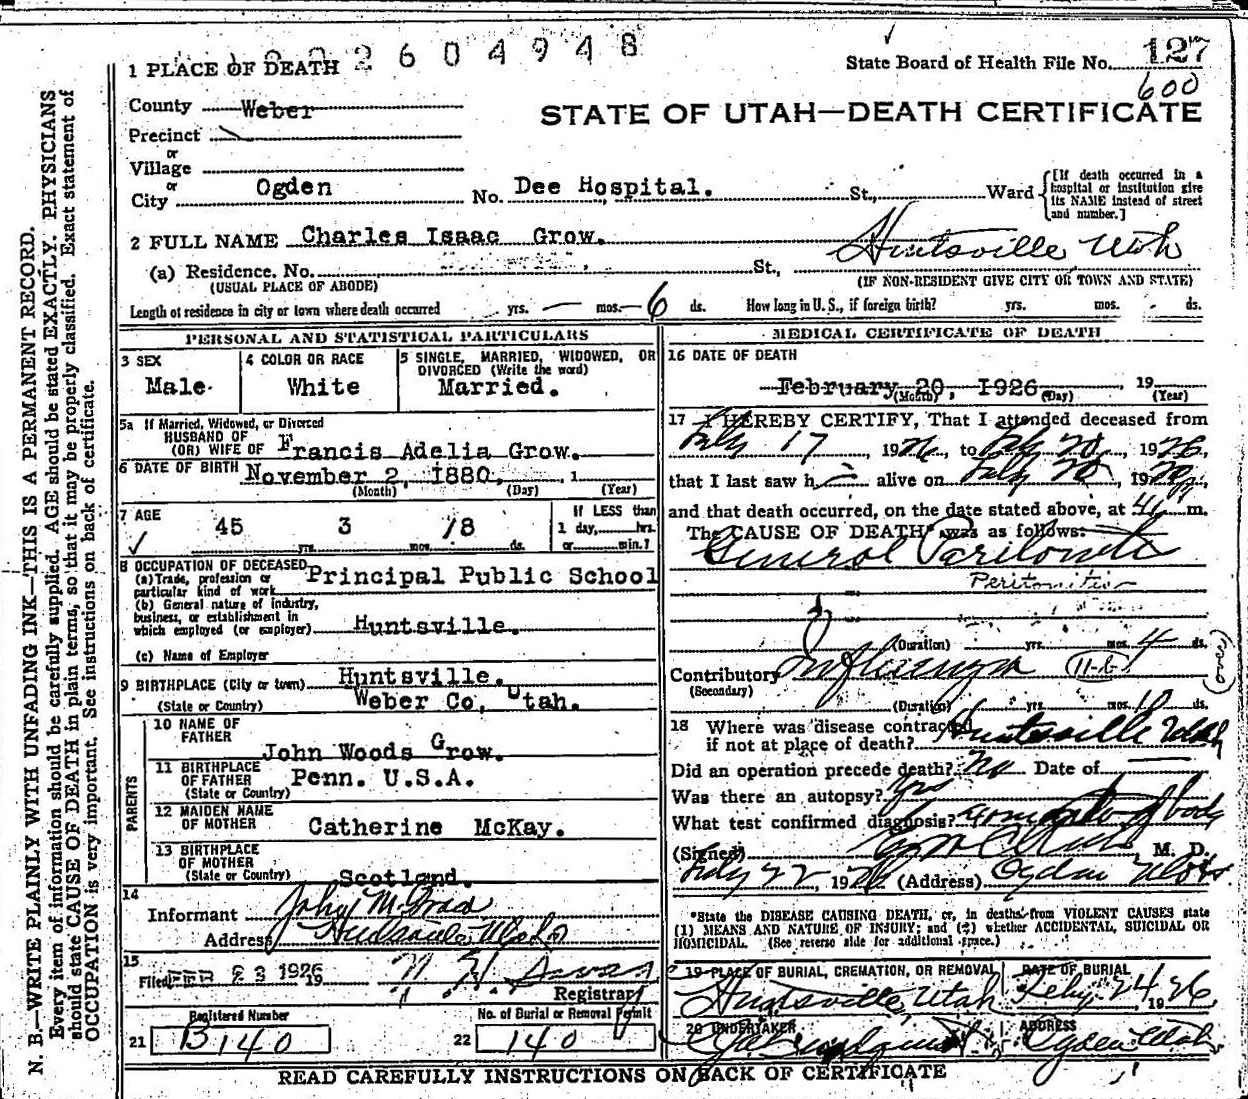 2 6 0 4 9 4 8
1 PLACE OF DEATH
State Board of Health File No. 127
600
County Weber
STATE OF UTAH—DEATH CERTIFICATE
Precinct
or
Village
or
City Ogden No. Dee Hospital. St., Ward
[If death occurred in a hospital or institution give its NAME instead of street and number.]
2 FULL NAME Charles Isaac Grow.
Huntsville Utah
(a) Residence. No. St.,
(USUAL PLACE OF ABODE) (IF NON-RESIDENT GIVE CITY OR TOWN AND STATE)
Length of residence in city or town where death occurred yrs. — mos. — 6 ds. How long in U. S., if foreign birth? yrs. mos. ds.
PERSONAL AND STATISTICAL PARTICULARS
3 SEX
Male
4 COLOR OR RACE
White
5 SINGLE, MARRIED, WIDOWED, OR
DIVORCED (Write the word)
Married.
5a If Married, Widowed, or Divorced
HUSBAND OF
(OR) WIFE OF Francis Adelia Grow.
6 DATE OF BIRTH November 2, 1880, 1
(Month) (Day) (Year)
7 AGE
45 yrs. 3 mos. 18 ds.
If LESS than
1 day, hrs.
or min.?
8 OCCUPATION OF DECEASED
(a) Trade, profession or
particular kind of work Principal Public School
(b) General nature of industry,
business, or establishment in
which employed (or employer) Huntsville.
(c) Name of Employer
9 BIRTHPLACE (City or town) Huntsville.
(State or Country) Weber Co, Utah.
PARENTS
10 NAME OF
FATHER John Woods Grow.
11 BIRTHPLACE
OF FATHER Penn. U.S.A.
(State or Country)
12 MAIDEN NAME
OF MOTHER Catherine McKay.
13 BIRTHPLACE
OF MOTHER
(State or Country) Scotland.
14
Informant
Address
15
Filed FEB 23 1926 19
Registrar
Registered Number
21 B 140
No. of Burial or Removal Permit
22 140
MEDICAL CERTIFICATE OF DEATH
16 DATE OF DEATH
February 20, 1926, 19
(Month) (Day) (Year)
17 I HEREBY CERTIFY, That I attended deceased from
Feby 17 1926, to Feby 20, 1926,
that I last saw h alive on Feby 20, 1926,
and that death occurred, on the date stated above, at m.
The CAUSE OF DEATH* was as follows:
General Peritonitis
Peritonitis
(Duration) yrs. mos. 4 ds.
Contributory Influenza 11-b
(Secondary)
(Duration) yrs. mos. ds.
(over)
18 Where was disease contracted
if not at place of death? Huntsville Utah
Did an operation precede death? No Date of —
Was there an autopsy? Yes
What test confirmed diagnosis? of body
(Signed) M. D.
Feby 22, 1926 (Address) Ogden Utah
*State the DISEASE CAUSING DEATH, or, in deaths from VIOLENT CAUSES state
(1) MEANS AND NATURE OF INJURY; and (2) whether ACCIDENTAL, SUICIDAL OR
HOMICIDAL. (See reverse side for additional space.)
19 PLACE OF BURIAL, CREMATION, OR REMOVAL
Huntsville, Utah
DATE OF BURIAL
Feby 24 1926
20 UNDERTAKER
ADDRESS
Ogden Utah
READ CAREFULLY INSTRUCTIONS ON BACK OF CERTIFICATE
N. B.—WRITE PLAINLY WITH UNFADING INK—THIS IS A PERMANENT RECORD.
Every item of information should be carefully supplied. AGE should be stated EXACTLY. PHYSICIANS
should state CAUSE OF DEATH in plain terms, so that it may be properly classified. Exact statement of
OCCUPATION is very important. See instructions on back of certificate.